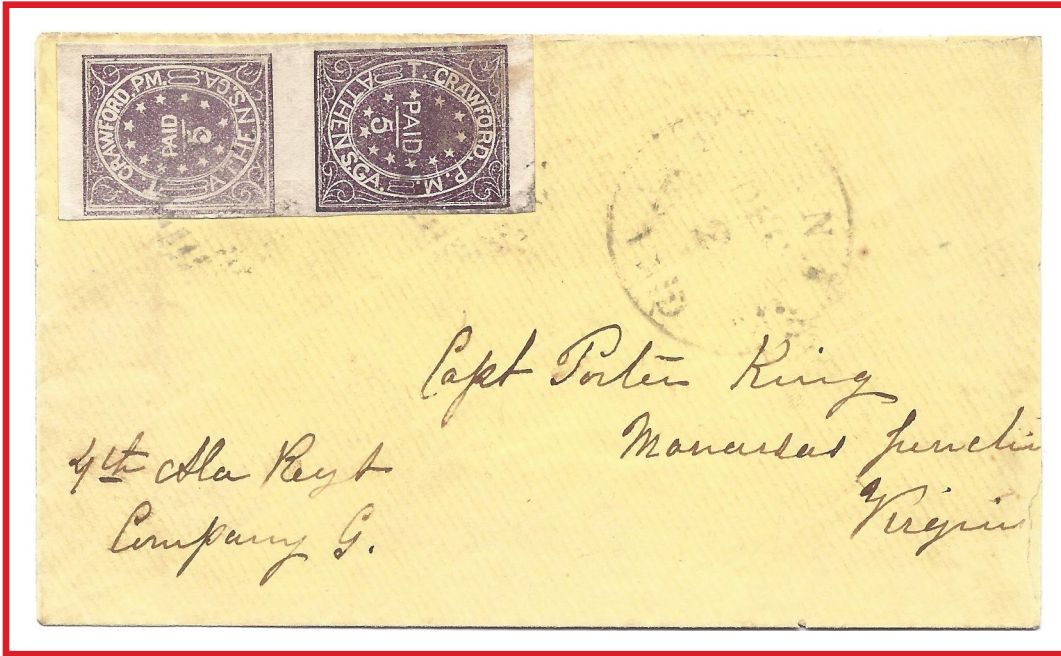 T. CRAWFORD, P.M.
PAID
5
ATHENS.GA.
T. CRAWFORD, P.M.
PAID
5
ATHENS.GA.
DEC
2
Capt Porter King
Manassas Junctio
Virginia
4th Ala Regt
Company G.